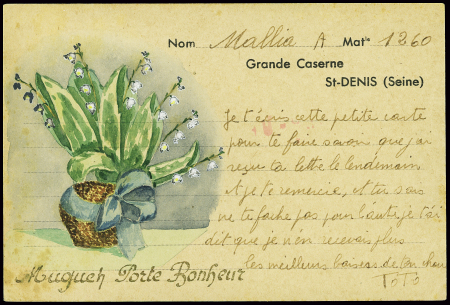 Nom Mallia A Matle 1260
Grande Caserne
St-DENIS (Seine)
Je t'écris cette petite carte
pour te faire savoir que j'ai
reçu ta lettre le lendemain
et je te remercie, et tu sais
ne te fache pas pour l'autre je t'ai
dit que je n'en recevais plus
les meilleurs baisers de ton chou
Toto
Muguet Porte Bonheur